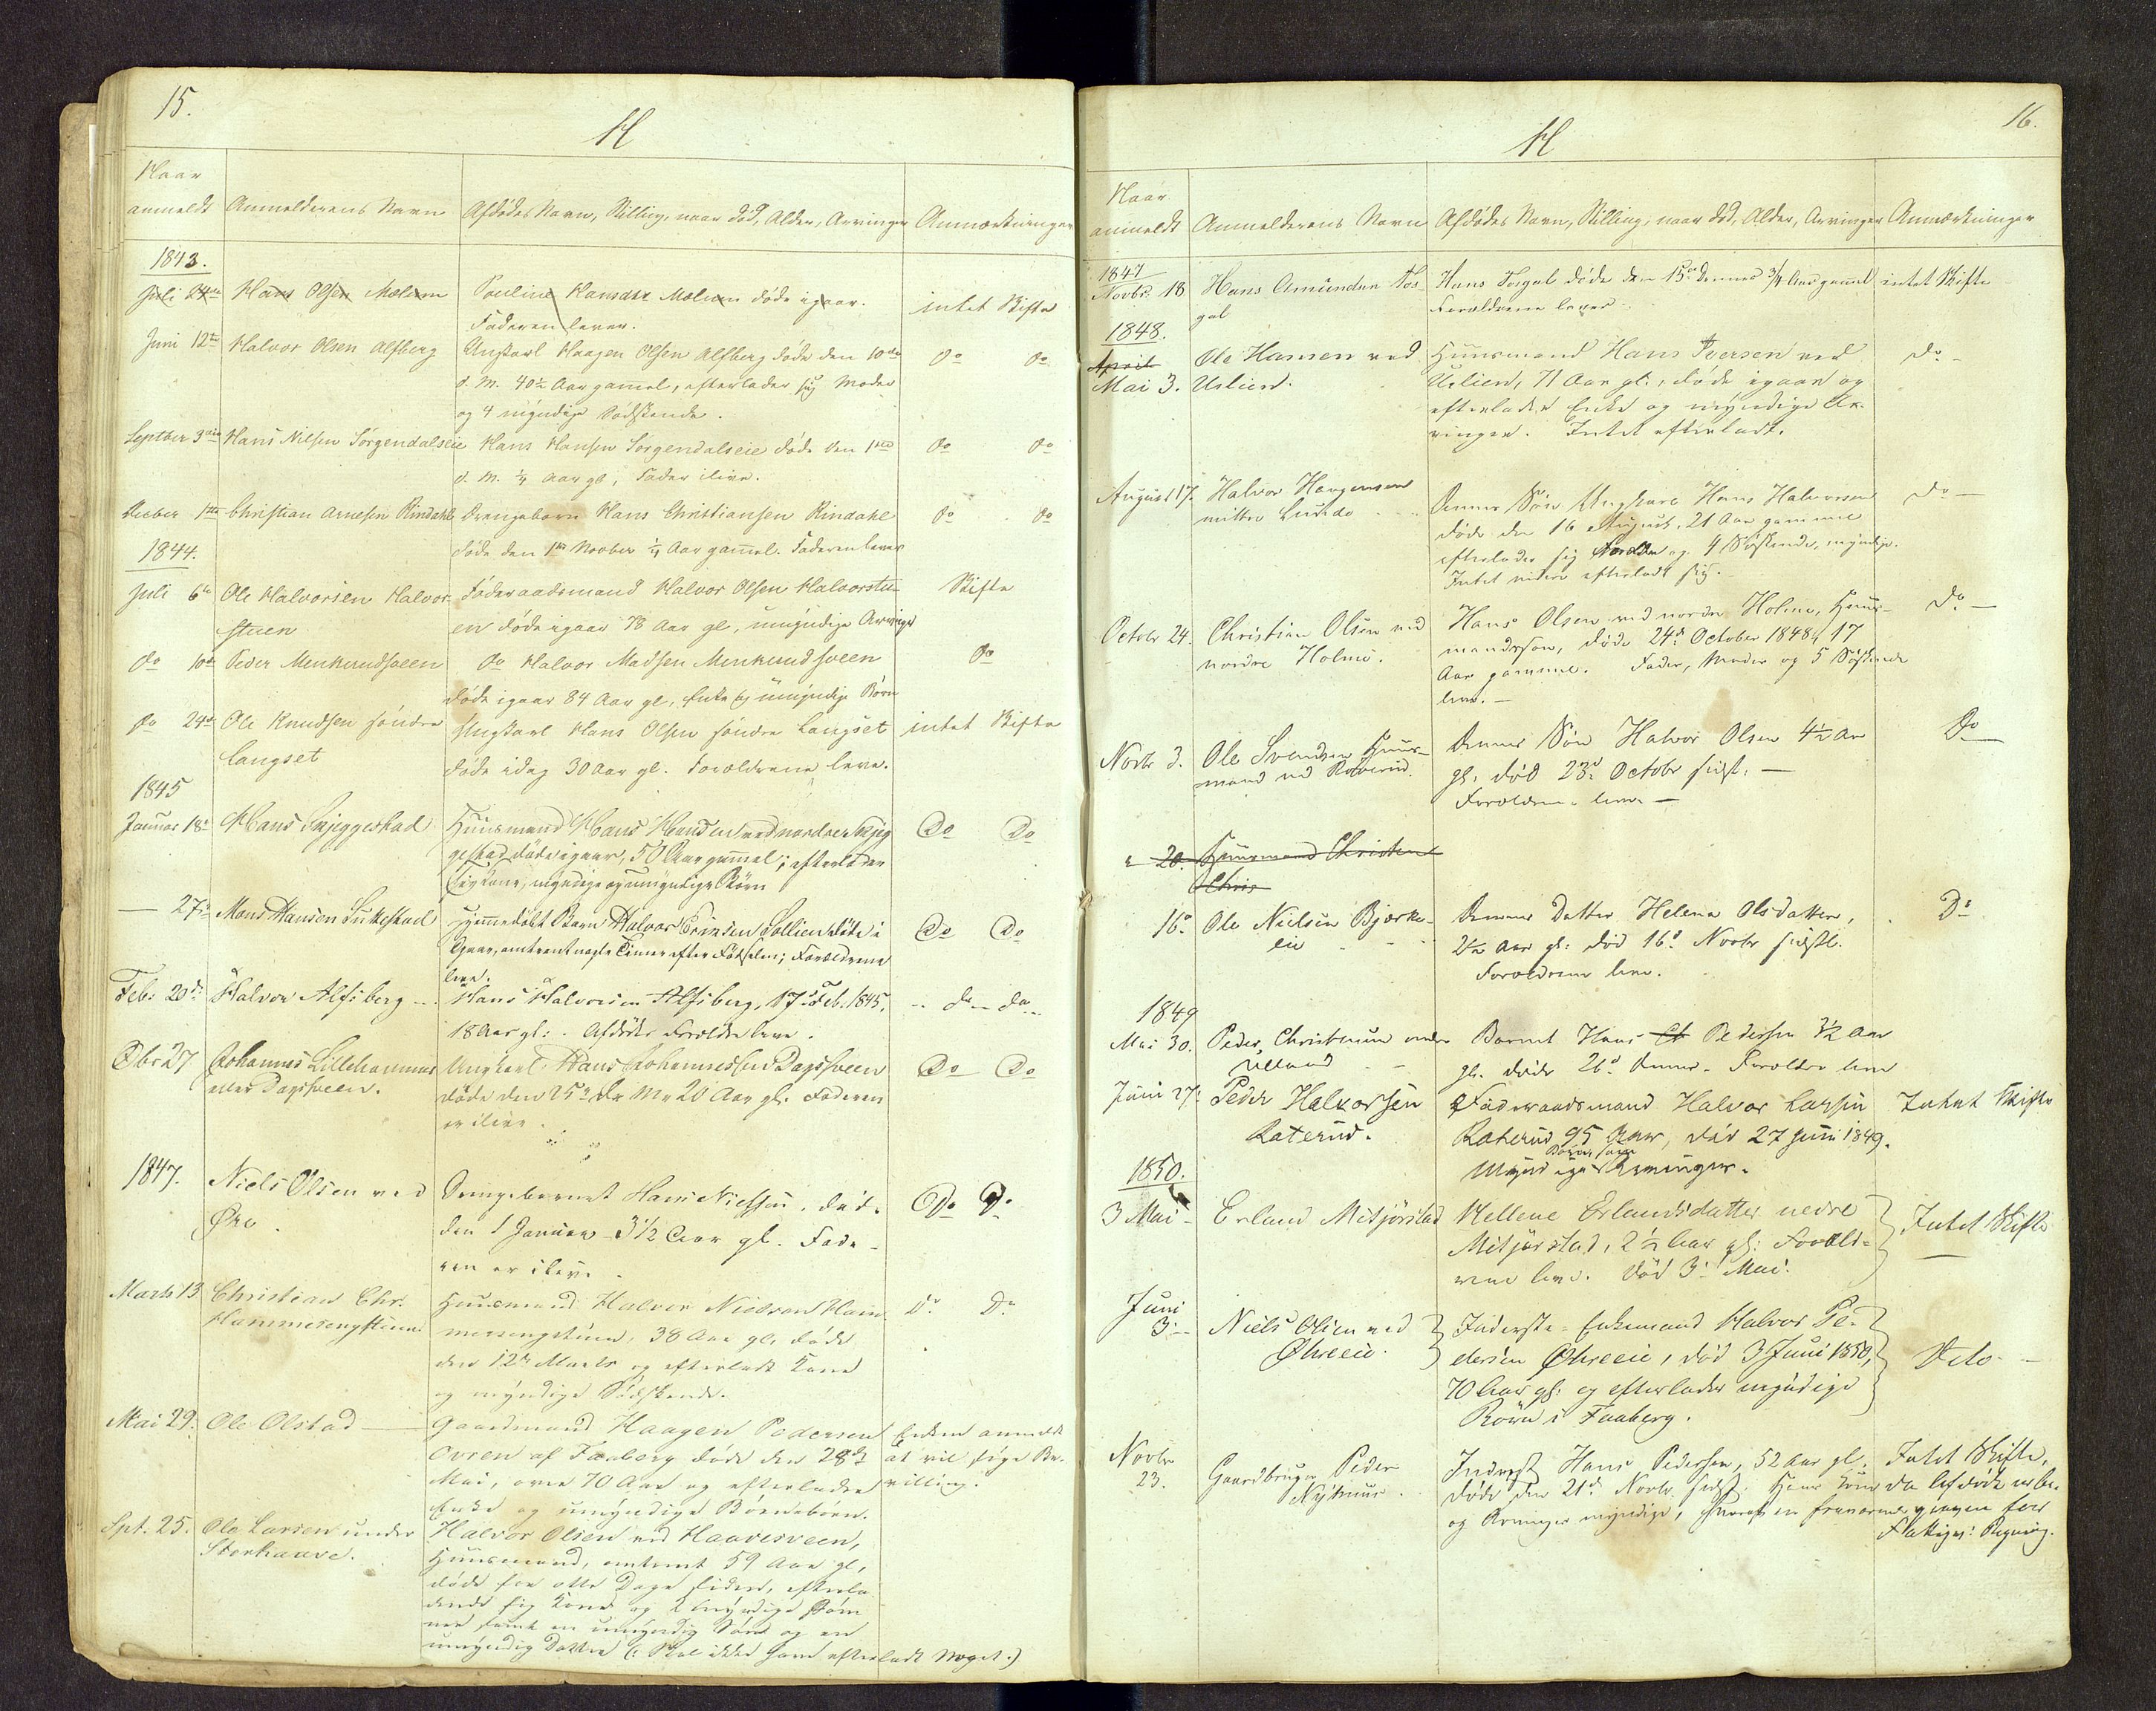 15.
H
Naar
anmeldt Anmelderens Navn Afdødes Navn, Stilling, naar død, Alder, Arvinger Anmærkninger
1843.
Juli 24de Hans Olsen Mælum Pauline Hansdtr Mælum døde igaar. intet Skifte
Faderen lever.
Juni 12te Halvor Olsen Alfberg Ungkarl Haagen Olsen Alfberg døde den 10de do do
d. M. 40½ Aar gamel, efterlader sig Moder
og 4 myndige Sødskende.
Septber 3die Hans Nilsen Sørgendalseie Hans Hansen Sørgendalseie døde den 1ste do do
d. M. ¼ Aar gl, Fader ilive.
Decber 1ste Christian Arnesen Rindahl Drengebarn Hans Christiansen Rindahl do do
døde den 1ste Novber ¼ Aar gammel. Faderen lever
1844.
Juli 6te Ole Halvorsen Halvor- Føderaadsmand Halvor Olsen Halvorstu- Skifte
stuen en døde igaar 78 Aar gl, umyndige Arvinger
do 10de Peder Menkerudsveen do Halvor Madsen Menkerudsveen do
døde igaar 84 Aar gl, Enke og umyndige Børn
do 24de Ole Knudsen søndre Ungkarl Hans Olsen søndre Langset intet Skifte
Langset døde idag 30 Aar gl. Forældrene leve.
1845
Januar 18de Hans Skjeggestad Huusmand Hans Hansen ved nordre Skjeg
gestad døde igaar, 50 Aar gammel; efterlader Do Do
sig Kone, myndige og umyndige Børn
— 27de Mons Hansen Sukkestad Hjemmedøbt Barn Halvor Frizsen Sollien døde i Do Do
Gaar, omtrent nogle Timer efter Fødselen; Forældrene
leve.
Feb: 20de Halvor Alfsberg — Hans Halvorsen Alfsberg, 17de Feb. 1845, do do
18 Aar gl: Afdødes Forældre leve.
Obr 27 Johannes Lillehammer Ungkarl Hans Johannessen Dagsveen Do Do
eller Dagsveen. døde den 25de ds M. 20 Aar gl. Faderen
er ilive.
1847. Niels Olsen ved Drengebarnet Hans Nielsen, død Do Do
Øve. den 1 Januar 3½ Aar gl. Fade-
ren er ilive.
Marts 13 Christian Chr. Huusmand Halvor Nielsen Ham- Do Do
Hammerengstuen mersengstuen, 38 Aar gl. døde
den 12te Marts og efterlod Kone
og myndige Sødskende.
Mai 29. Ole Olstad — Gaardmand Haagen Pedersen Enken anmeldt
Ovren af Faaberg døde den 28de at vil søge Be-
Mai, over 70 Aar og efterlader villing.
Enke og umyndige Børnebørn.
Spt. 25. Ole Larsen under Halvor Olsen ved Haavesveen,
Storhaave. Huusmand, omtrent 59 Aar gl,
døde for otte Dage siden, efterla-
dende sig Kone og 2 myndige Døtre
samt en umyndig Søn og en
umyndig Datter (: Skal ikke have efterladt Noget.)
16.
H
Naar
anmeldt Anmelderens Navn Afdødes Navn, Stilling, naar død, Alder, Arvinger Anmærkninger
1847
Novbr. 18 Hans Amundsen Fos- Hans Fosgal døde den 15de dennes ¾ Aar gammel intet Skifte
gal Forældrene lever.
1848.
April
Mai 3. Ole Hansen ved Huusmand Hans Iversen ved do —
Uslien. Uslien, 71 Aar gl:, døde igaar og
efterlader Enke og myndige Ar-
vinger. Intet efterladt.
August 17. Halvor Haagensen Dennes Søn Ungkarl Hans Halvorsen do —
døde den 16 August, 21 Aar gammel
efterlader sig Forældre og 4 Søskende, myndige.
Intet videre efterladt sig.
Octobr 24. Christian Olsen ved Hans Olsen ved nordre Holme, Huus- do —
nordre Holme. mandssøn, døde 24de October 1848, 17
Aar gammel. Fader, Moder og 5 Søskende
leve. —
Novbr 3. Ole Svendsen Huus- Dennes Søn Halvor Olsen 4½ Aar Do
mand ved Roverud. gl. død 23de Octobr sidst. —
Forældrene leve —
" 20. Huusmand Christian
Chris
16de Ole Nielsen Bjerke- Dennes Datter Helena Olsdatter, Do
eie 2½ Aar gl: død 16de Novbr sidstl.
Forældrene leve.
1849
Mai 30. Peder Christensen under Barnet Hans Ch Pedersen ½ Aar
Ulland gl. døde 26de dennes. Forældre leve
Juni 27. Peder Halvorsen Føderaadsmand Halvor Larsen Intet Skifte
Raterud. Raterud 95 Aar, død 27 Juni 1849.
Børn som
Myndige Arvinger.
1850.
3 Mai — Erland Mitjørstad Hellene Erlandsdatter nedre Intet Skifte
Mitjørstad, 2½ Aar gl: Foræld-
rene leve. Død 3die Mai.
Juni
3die Niels Olsen ved Inderste-Enkemand Halvor Pe-
Øhreeie. dersen Øhreeie, død 3 Juni 1850, Dito —
70 Aar gl: og efterlader myndige
Børn i Faaberg.
Novbr
23. Gaardbruger Peder Inderst Hans Pedersen, 52 Aar gl. Intet Skifte,
Nyhuus. døde den 21de Novbr. sidst. Hans Kone da Afdøde er be-
og Arvinger myndige, hvoraf en fraværende gravet for
Fattiges Regning.